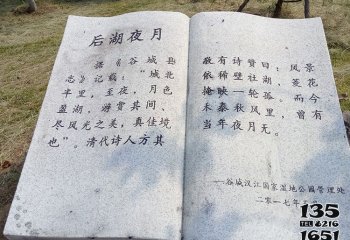 后湖夜月
据《谷城县
志》记载：“城北
半里，至夜，月色
盈湖，游赏其间、
尽风光之美，真佳境
也”。清代诗人方其
敬有诗赞曰：风景
依稀璧社湖，菱花
掩映一轮孤。而今
未秦秋风里，曾有
当年夜月无。
——谷城汉江国家湿地公园管理处
二〇一七年
135
TEL 216
1651